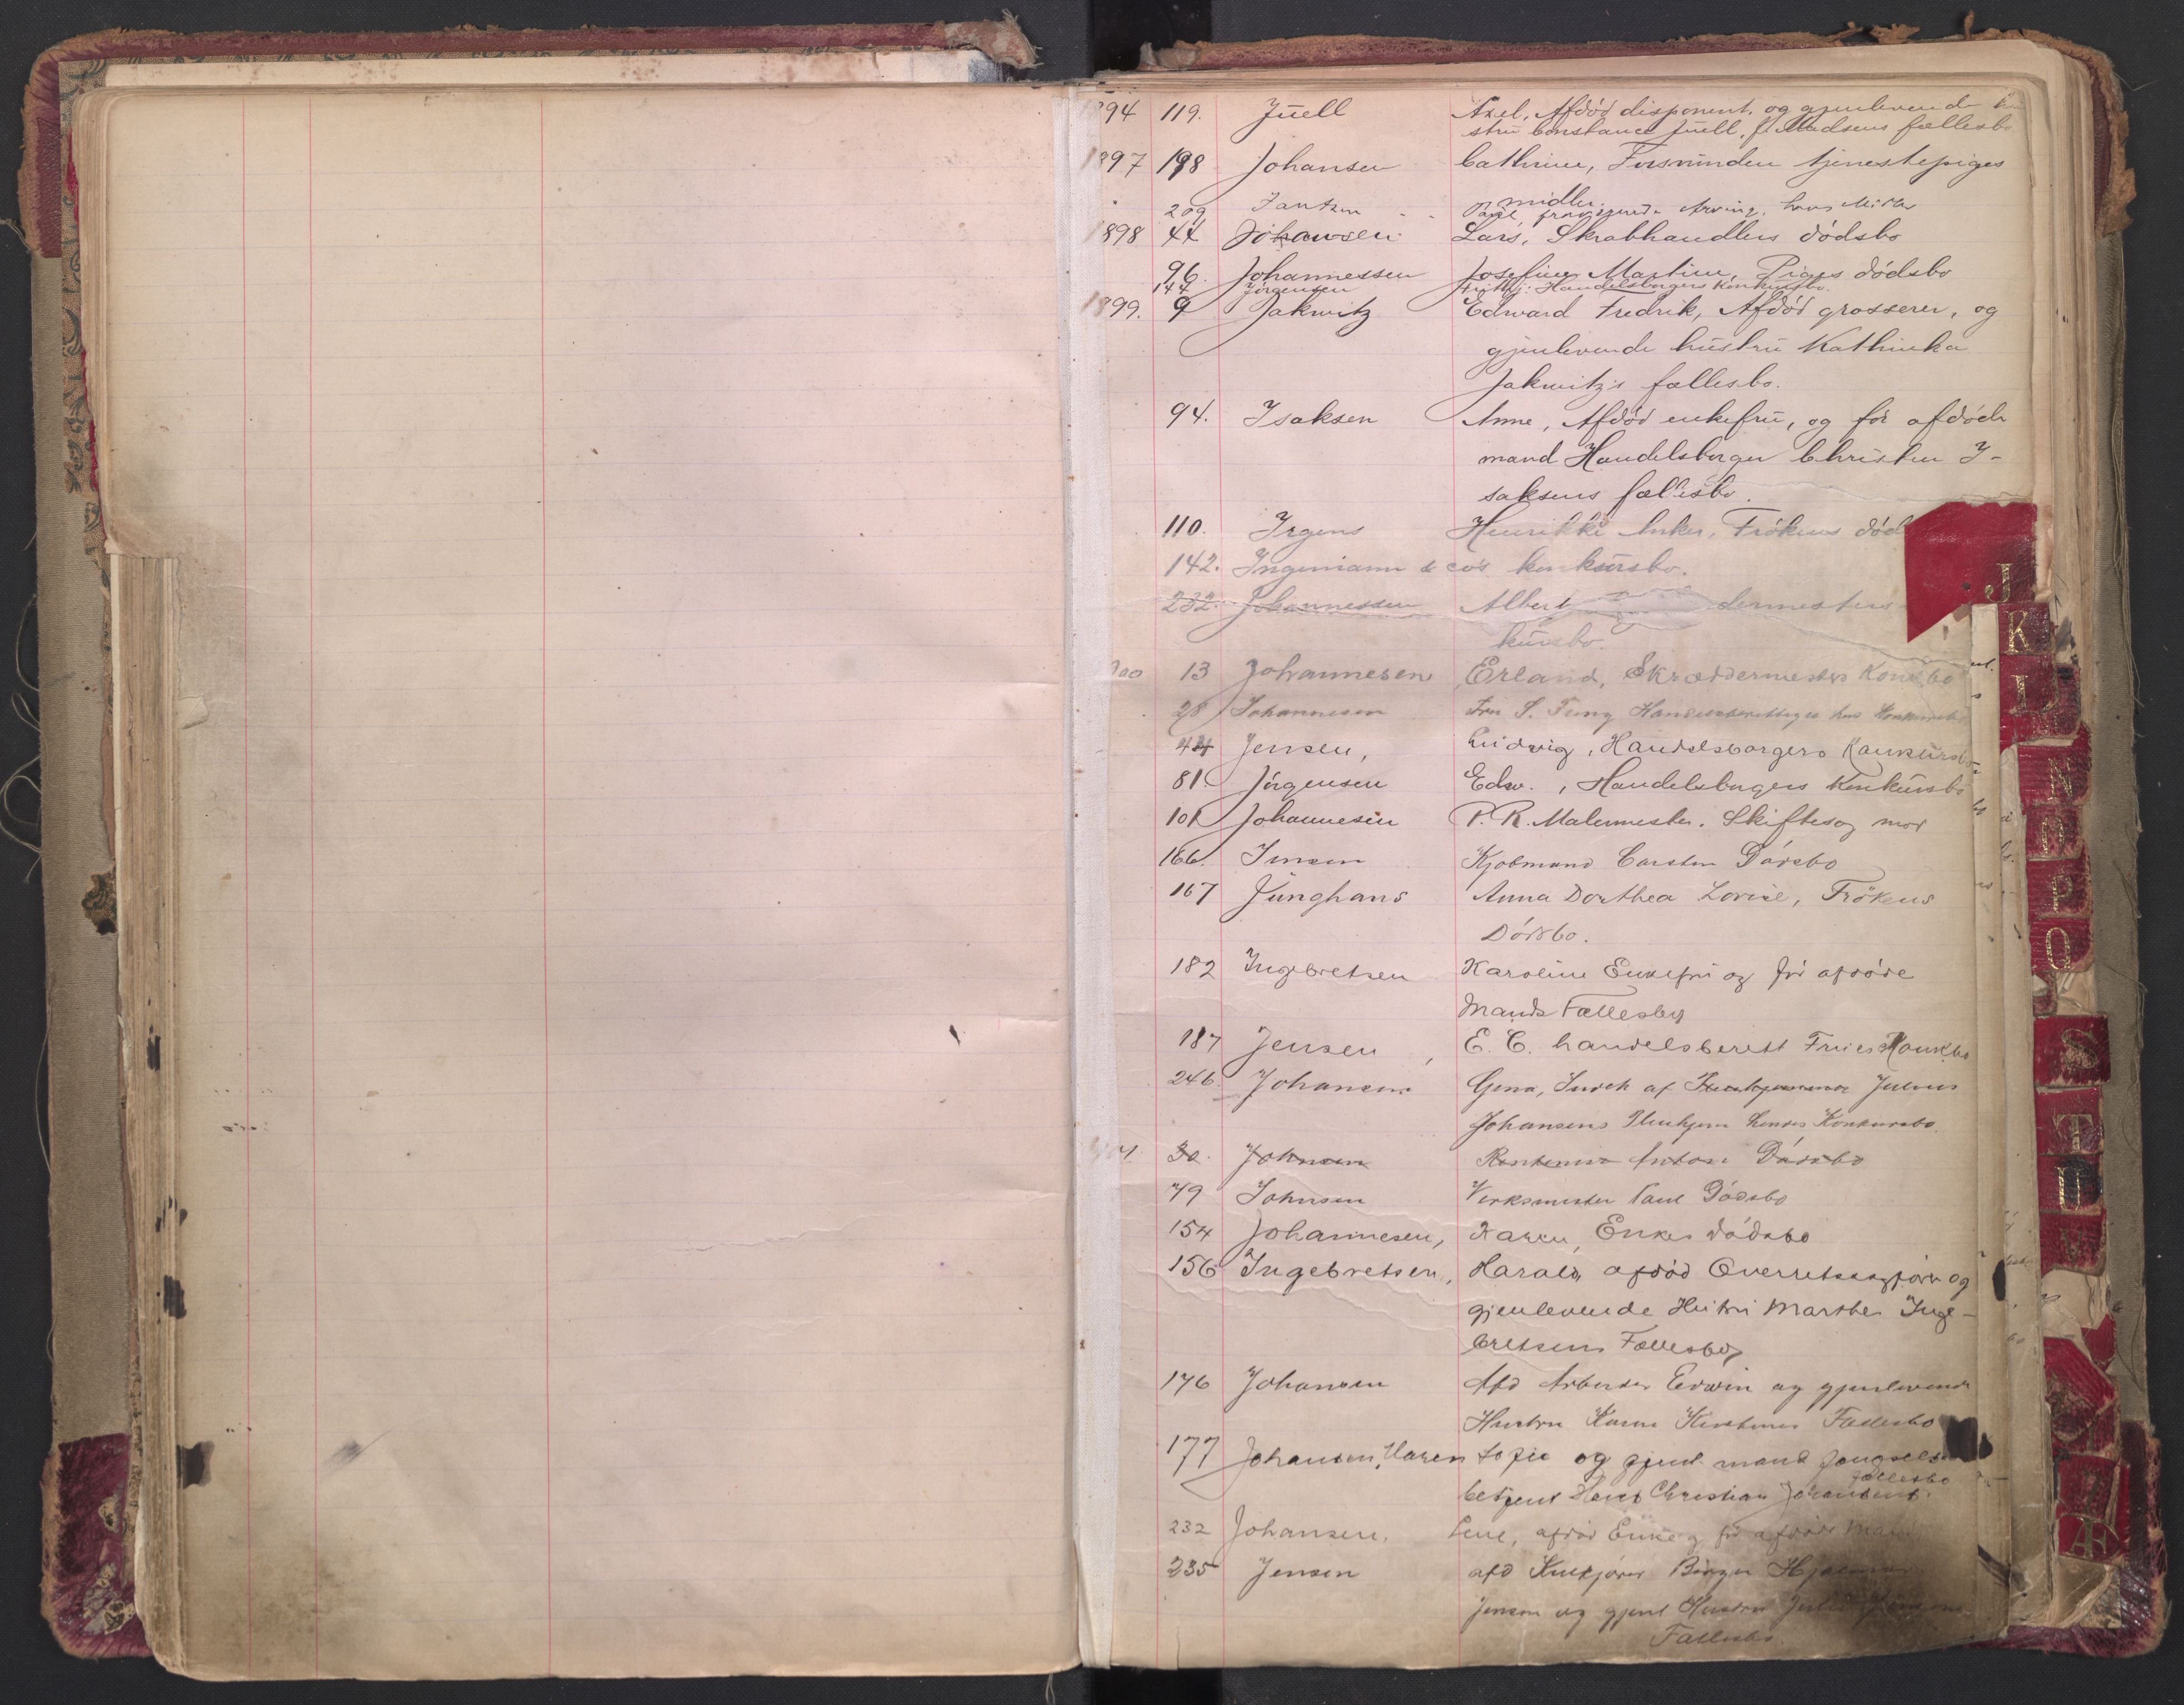 1894 119. Juell Axel, Afdød disponent, og gjenlevende
stru Constance Juell, f. Madsens fællesbo
1897 198 Johansen Cathrine, Forsvunden tjenestepiges
midler.
" 209 Jantzen - - Paul fraværende Arving, hans Midler
1898 44 Johansen Lars, Skrabhandlers dødsbo
96. Johannessen Josefine Martine, Piges dødsbo
144 Jørgensen Frithj: Handelsborgers Konkursbo.
1899. 9 Jakwitz Edward Fredrik, Afdød grosserer, og
gjenlevende hustru Kathinka
Jakwitz's fællesbo.
94. Isaksen Anne, Afdød enkefru, og før afdøde
mand Handelsborger Christen I-
saksens fællesbo.
110. Irgens Henrikke Anker, Frøkens død
142. Ingemann & co's konkursbo.
232. Johannessen Albert dermesters
kursbo.
900 13 Johannesen Erland, Skræddermesters Konkbo
28 Johannesen Fru S. Handelsberettiget hus Konkursbo
44 Jensen, Ludvig, Handelsborgers Konkursbo
81. Jørgensen Edw., Handelsborgers Konkursbo
101 Johannesen P. R. Malermester. Skiftesag mod
166. Jensen Kjøbmand Carsten Dødsbo
167 Junghans Anna Dorthea Lovise, Frøkens
Dødsbo.
182 Ingebretsen Karoline Enkefru og før afdøde
Mands Fællesbo
187 Jensen, E. C. handelsberett Frues Konkbo
246. Johansen Gina, Indeh af Julius
Johansens hendes Konkursbo.
1901 30. Johnsen Rentenist Anton Dødsbo
79 Johnsen Verksmester Paul Dødsbo
154 Johannesen, Karen, Enkes dødsbo
156 Ingebretsen, Harald, afdød Overretssagfører og
gjenlevende Hustru Marthes Inge-
bretsens Fællesbo
176 Johansen Afd Arbeider Edwin og gjenlevende
Hustru Karen Kirstines Fællesbo
177 Johansen, Karen Sofie og gjenl. mand fængsels
betjent Christian Johansens fællesbo.
232 Johansen, Lene, afdød Enke og før afdøde Mand
235 Jensen afd Birger
Jensen og gjenl Hustru
Fællesbo.
J
K
L
N
P
O
S
T
U
Æ